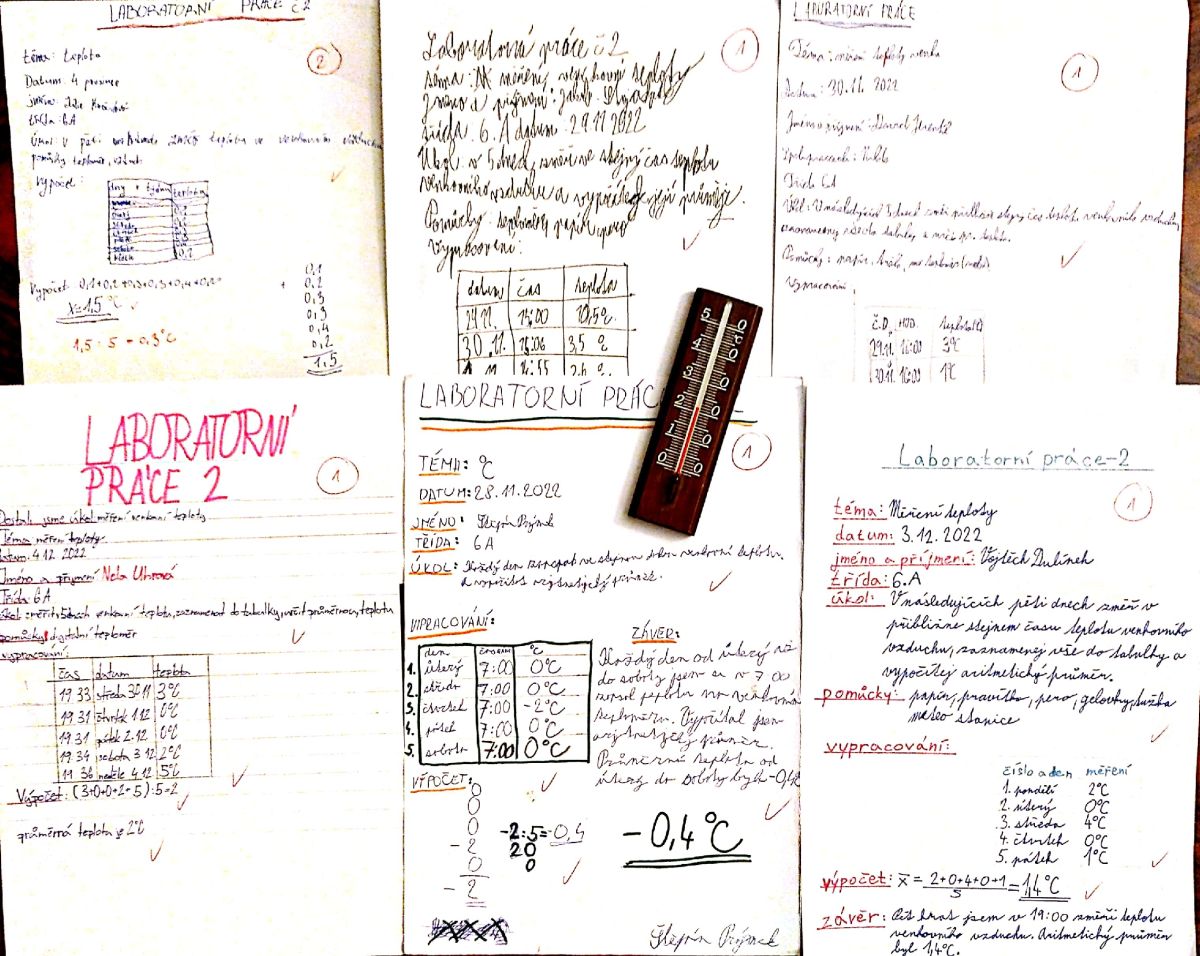 LABORATORNÍ PRÁCE Č2
2
téma: teplota
Datum: 4 prosince
třída: 6A
Úkol: V pěti teplotu ve venkovním
pomůcky teploměr,
Výpočet:
dny v týdnu teplota
Výpočet 0,1+0,2+0,3+0,3+0,4+0,2
x=1,5 °C
1,5 : 5 = 0,3°C
+ 0,1
0,2
0,3
0,3
0,4
0,2
1,5
Laboratorná práce č 2
1
téma: měření teploty
Jméno a příjmení:
třída: 6.A datum: 29.11 2022
Úkol: v 5 dnech změř ve stejný čas teplotu
venkovního vzduchu a její průměr.
Pomůcky: teploměr, papír, pero
Vypracování:
datum čas teplota
29.11. 15:00 10,5°C
30.11. 15:06 3,5 °C
LABORATORNÍ PRÁCE
1
Téma: měření teploty venku
Datum: 30.11. 2022
Jméno a příjmení:
Třída 6A
Úkol: V následujících 5 dnech změř přibližně stejný čas teplotu venkovního vzduchu,
Pomůcky: papír,
Vypracování
Č.D. HOD. teplota
29.11. 16:00 3°C
30.11. 16:00 1°C
5 0
4 0
3 0
2 0
1 0
0 0
°C
LABORATORNÍ
PRÁCE 2
1
Dostali jsme úkol měření venkovní teploty
Téma měření teploty
datum: 4.12. 2022
Jméno a příjmení Nela Uhrová
Třída: 6A
úkol: změřit v 5 dnech venkovní teplotu, zaznamenat do tabulky, určit průměrnou teplotu
pomůcky: digitální teploměr
vypracování:
čas datum teplota
19 33 středa 30 11 3°C
19.31 čtvrtek 1.12 0°C
19.31 pátek 2.12 0°C
19.34 sobota 3.12 2°C
19 36 neděle 4.12 5°C
Výpočet: (3+0+0+2+5):5=2
průměrná teplota je 2°C
LABORATORNÍ PRÁC
1
TÉMA: °C
DATUM: 28.11.2022
JMÉNO: Štěpán Prýmek
TŘÍDA: 6A
ÚKOL: Každý den zaznamenat ve stejnou dobu venkovní teplotu.
A vypočítat aritmetický průměr.
VIPRACOVÁNÍ:
den °C
1. úterý 7:00 0°C
2. středa 7:00 0°C
3. čtvrtek 7:00 -2°C
4. pátek 7:00 0°C
5. sobota 7:00 0°C
VÝPOČET:
0
0
0
-2
0
-2
-2:5=-0,4
20
0
ZÁVĚR:
Každý den od úterý až
do soboty jsem se v 7 00
teplotu na venkovním
teploměru. Vypočítal jsem
aritmetický průměr.
Průměrná teplota od
úterý do soboty byla -0,4°C
-0,4°C
Štěpán Prýmek
Laboratorní práce-2
1
téma: Měření teploty
datum: 3.12. 2022
jméno a příjmení: Vojtěch Dulínek
třída: 6.A
úkol: V následujících pěti dnech změř v
přibližně stejném času teplotu venkovního
vzduchu, zaznamenej vše do tabulky a
vypočítej aritmetický průměr.
pomůcky: papír, pravítko, pero, gelovky, tužka
meteo stanice
vypracování:
číslo a den měření
1. pondělí 2°C
2. úterý 0°C
3. středa 4°C
4. čtvrtek 0°C
5. pátek 1°C
výpočet: x̄ = 2+0+4+0+1/5 = 1,4°C
závěr: Pět krát jsem v 19:00 změřil teplotu
venkovního vzduchu. Aritmetický průměr
byl 1,4°C.